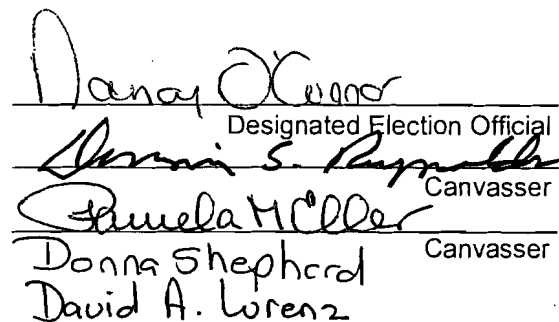 Nancy O'Connor
Designated Election Official
Dennis S. Reynolds
Canvasser
Pamela M Eller
Canvasser
Donna Shepherd
David A. Lorenz